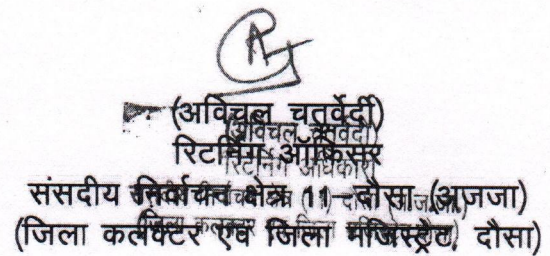 (अविचल चतुर्वेदी)
रिटर्निंग ऑफिसर
संसदीय निर्वाचन क्षेत्र 11- दौसा (अजजा)
(जिला कलेक्टर एवं जिला मजिस्ट्रेट, दौसा)